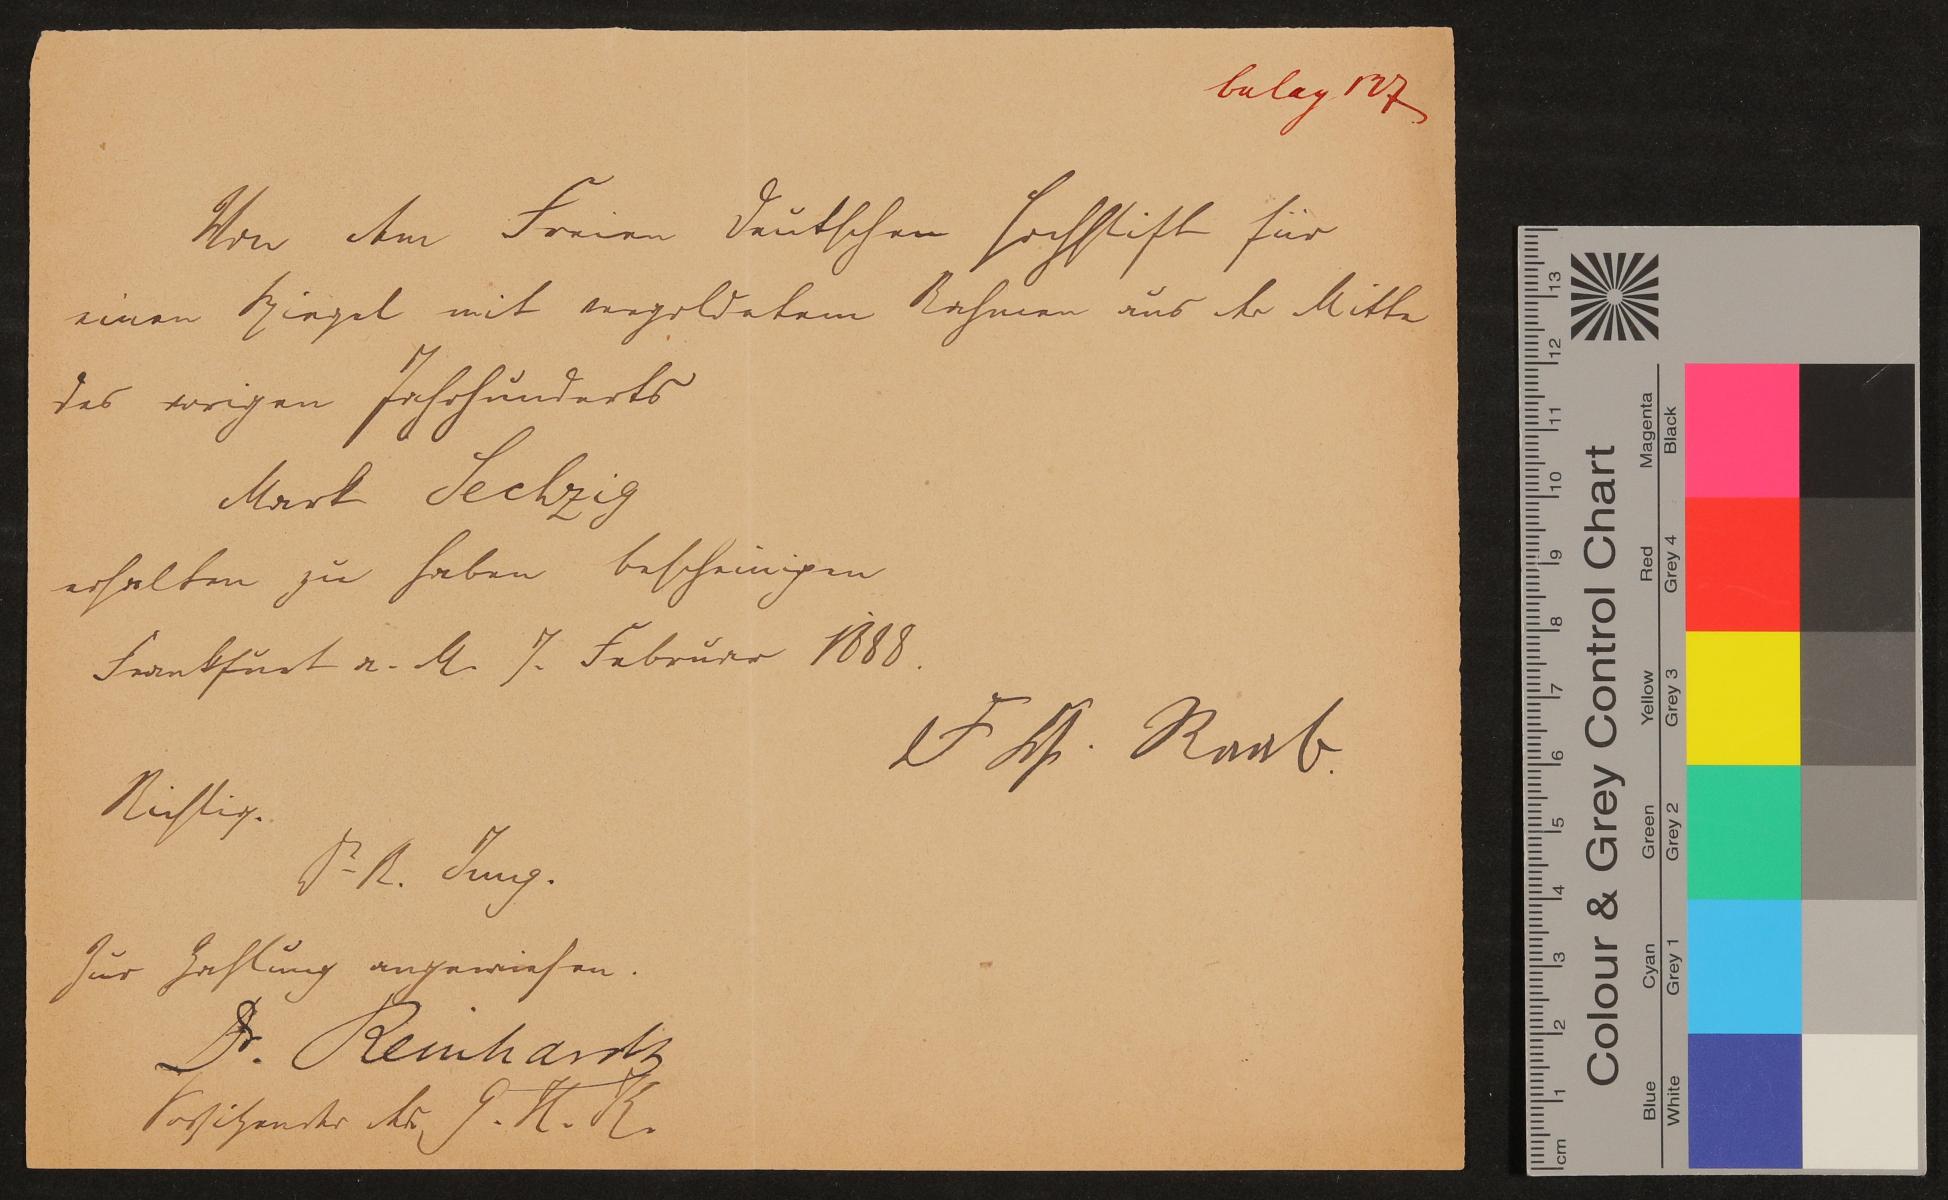 belag 127
Von dem Freien Deutschen Hochstift für
einen Spiegel mit vergoldetem Rahmen aus der Mitte
des vorigen Jahrhunderts
Mark Sechzig
erhalten zu haben bescheinigen
Frankfurt a. M. 7. Februar 1888.
F Raab.
Richtig.
Dr R. Jung.
Zur Zahlung angewiesen.
Dr. Reinhardt
Vorsitzender der G. H. K.
Colour & Grey Control Chart
Magenta
Red
Yellow
Green
Cyan
Blue
Black
Grey 4
Grey 3
Grey 2
Grey 1
White
cm 1 2 3 4 5 6 7 8 9 10 11 12 13